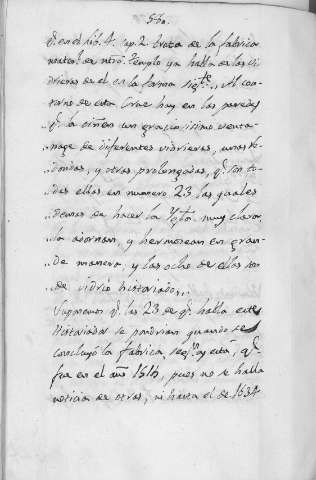 560.
q.e en el lib.o 4. cap. 2. trata de la fabrica
de ntro. Templo ya habla de las vi
drieras de el en la forma sig.te „ Al con-
„torno de este Cruc.o hay en las paredes
„q.e la ciñen un graciosissimo venta-
„nage de diferentes vidrieras, unas re-
„dondas, y otras prolongadas, q.e son to-
„das ellas en numero 23 las quales
„demas de hacer la Yg.ta muy clara,
„la adornan, y hermosean en gran-
„de manera, y las ocho de ellas son
„de vidrio historiado„.
Suponemos q.e las 23 de q.e habla este
Historiador se pondrian quando se
concluyó la fabrica, seg.n esta, q.e
fue en el año 1515, pues no se halla
noticia de otras, ni hasta el de 1634